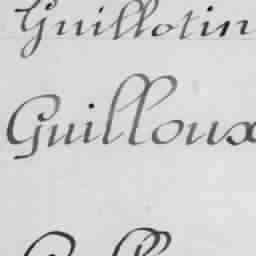 Guillotin
Guilloux